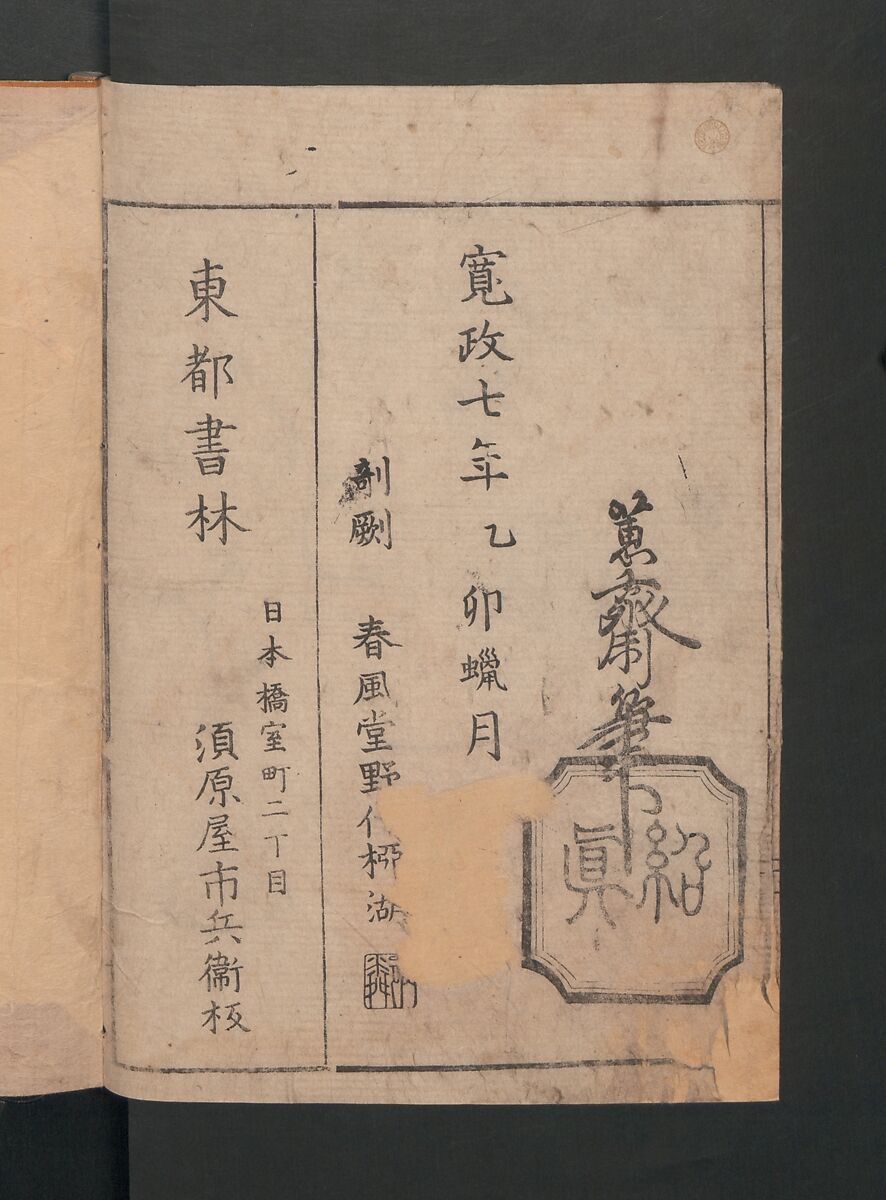 蕙齋筆
紹眞
寛政七年乙卯蠟月
剞劂　春風堂野代柳湖
東都書林
日本橋室町二丁目
須原屋市兵衞板